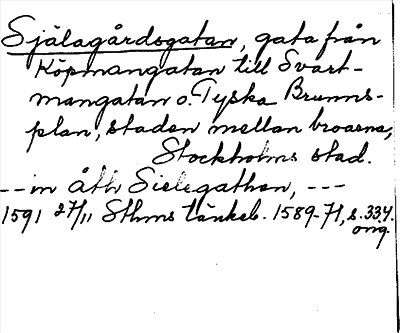 Själagårdsgatan, gata från
Köpmangatan till Svart-
mangatan o. Tyska Brunns-
plan, staden mellan broarna,
Stockholms stad.
-- in åth Sielegathan, ---
1591 27/11 Sthms tänkeb. 1589-91, s. 334.
orig.